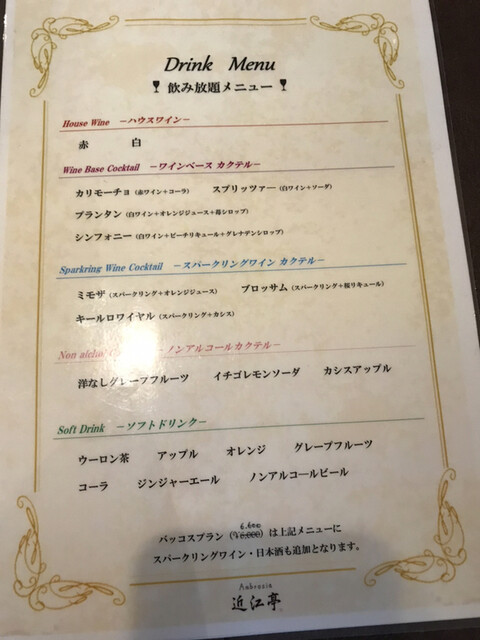 Drink Menu
飲み放題メニュー
House Wine －ハウスワイン－
赤 白
Wine Base Cocktail －ワインベース カクテル－
カリモーチョ (赤ワイン+コーラ) スプリッツァー (白ワイン+ソーダ)
プランタン (白ワイン+オレンジジュース+苺シロップ)
シンフォニー (白ワイン+ピーチリキュール+グレナデンシロップ)
Sparkring Wine Cocktail －スパークリングワイン カクテル－
ミモザ (スパークリング+オレンジジュース) ブロッサム (スパークリング+桜リキュール)
キールロワイヤル (スパークリング+カシス)
Non alcohol －ノンアルコールカクテル－
洋なしグレープフルーツ イチゴレモンソーダ カシスアップル
Soft Drink －ソフトドリンク－
ウーロン茶 アップル オレンジ グレープフルーツ
コーラ ジンジャーエール ノンアルコールビール
6,600
バッコスプラン (¥6,000) は上記メニューに
スパークリングワイン・日本酒も追加となります。
Anbrosia
近江亭